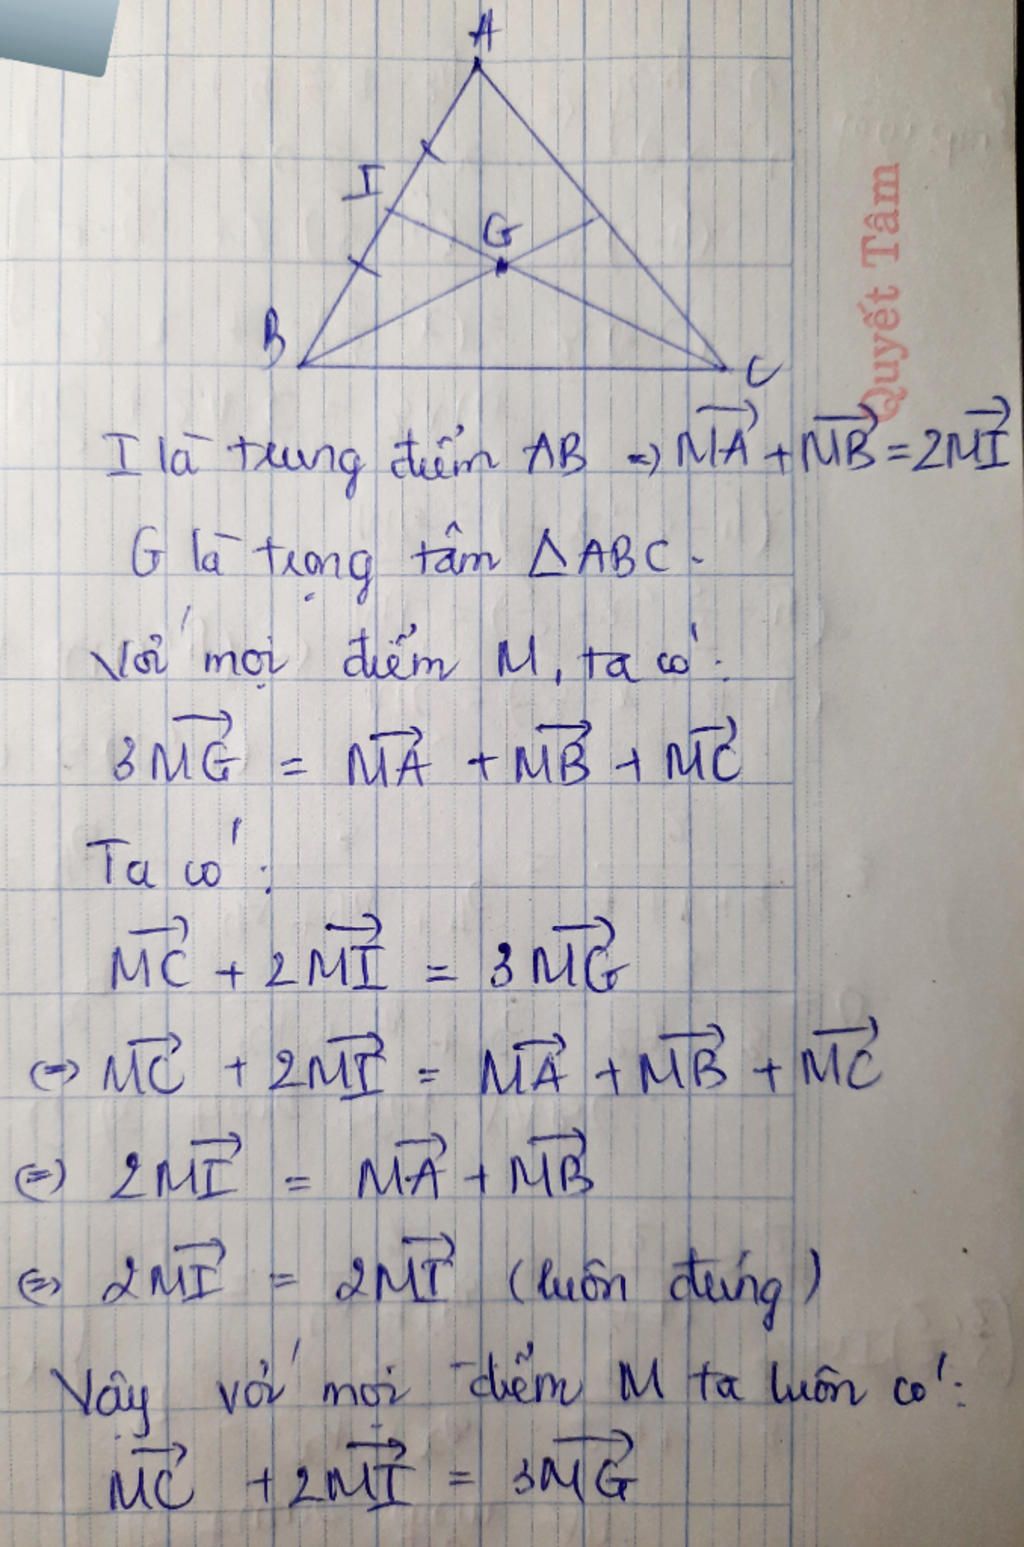 A
I
G
B
C
Quyết Tâm
I là trung điểm AB => \overrightarrow{MA} + \overrightarrow{MB} = 2\overrightarrow{MI}
G là trọng tâm △ABC.
Với mọi điểm M, ta có:
3\overrightarrow{MG} = \overrightarrow{MA} + \overrightarrow{MB} + \overrightarrow{MC}
Ta có:
\overrightarrow{MC} + 2\overrightarrow{MI} = 3\overrightarrow{MG}
<=> \overrightarrow{MC} + 2\overrightarrow{MI} = \overrightarrow{MA} + \overrightarrow{MB} + \overrightarrow{MC}
<=> 2\overrightarrow{MI} = \overrightarrow{MA} + \overrightarrow{MB}
<=> 2\overrightarrow{MI} = 2\overrightarrow{MI} (luôn đúng)
Vậy với mọi điểm M ta luôn có:
\overrightarrow{MC} + 2\overrightarrow{MI} = 3\overrightarrow{MG}